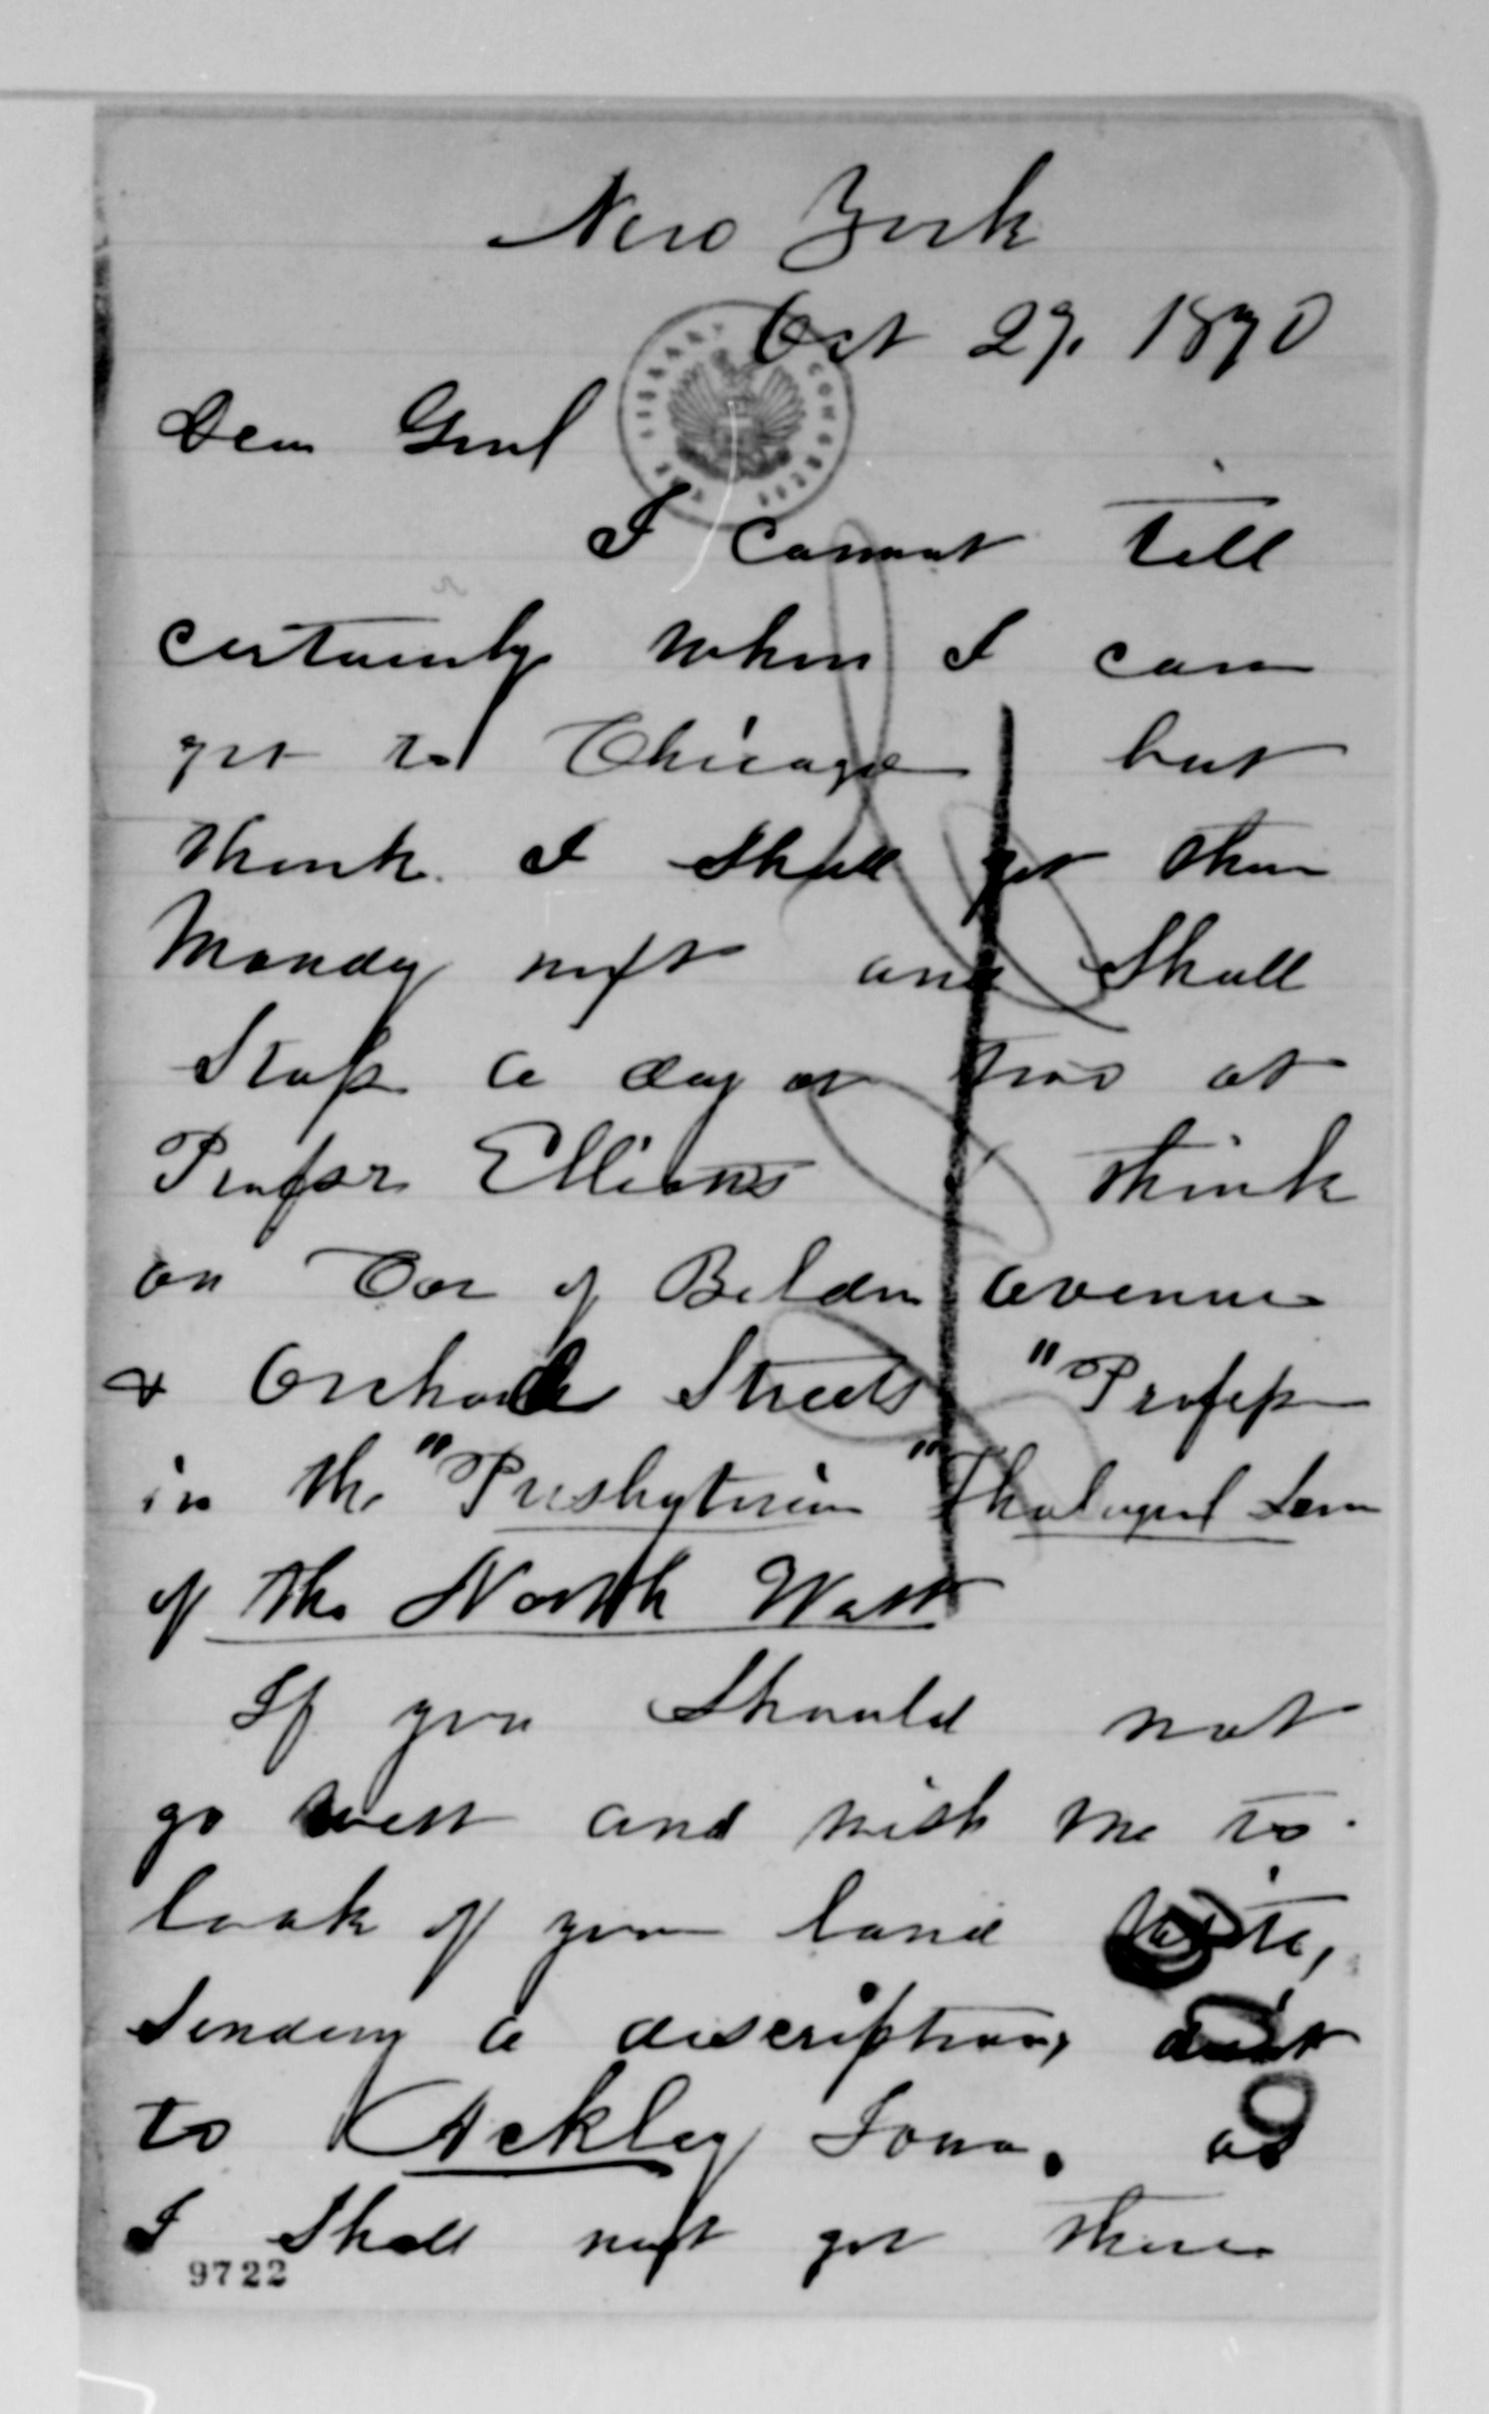 New York
Oct 29. 1870
Dear Genl
I cannot tell
certainly when I can
get to Chicago but
think I shall get there
Monday next and shall
Stop a day or two at
Profsr Elliotts think
on Cor of Belden Avenue
& Orchard Streets "Profess
in the "Presbyterian" Theological Sem
of the North West
If you Should not
go west and wish me to
look of your land write,
Sending a description, 
to Ackley Iowa, as
I Shall next get there
9722